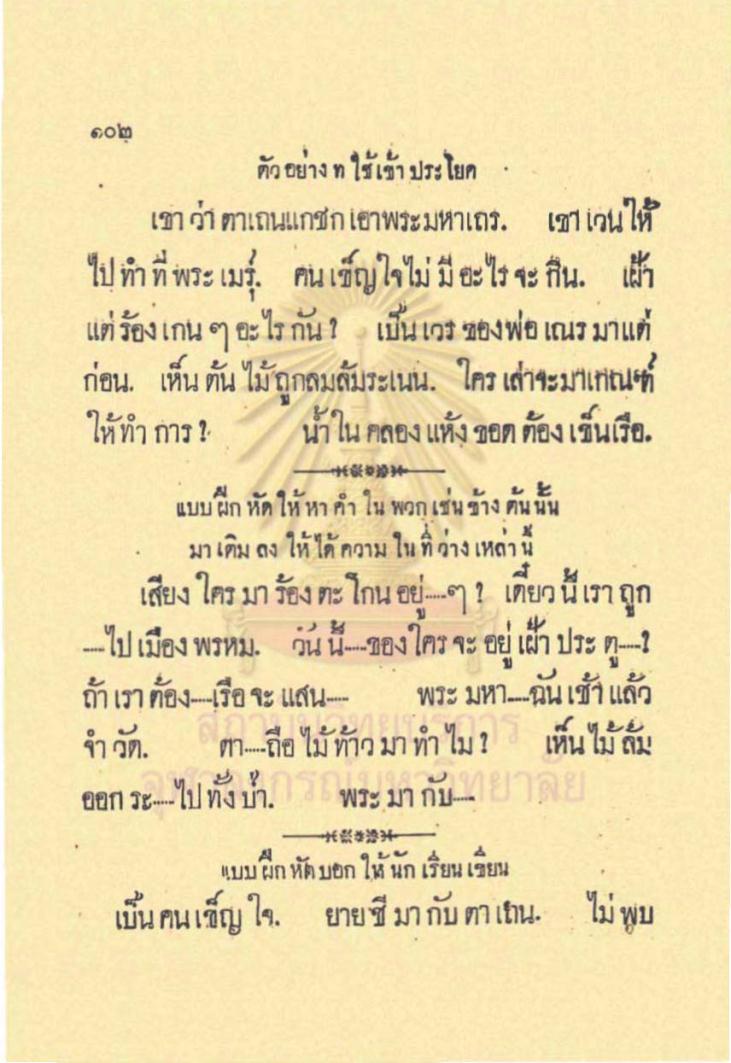 ๑๐๒
ตัว อย่าง ท ใช้ เข้า ประ โยค
เขา ว่า ตาเถนแกชกเอาพระมหาเถร. เขา เวนให้
ไป ทำ ที่ พระ เมรุ์. คน เข็ญใจไม่ มี อะไร จะ กิน. เฝ้า
แต่ ร้อง เกน ๆ อะ ไร กัน ? เป็น เวร ของพ่อ เณร มาแต่
ก่อน. เห็น ต้น ไม้ ถูกลมล้มระเนน. ใคร เล่าจะมาเกณฑ์
ให้ ทำ การ ? น้ำ ใน คลอง แห้ง ขอด ต้อง เข็นเรือ.
แบบ ฝึก หัด ให้ หา คำ ใน พวก เช่น ข้าง ต้น นั้น
มา เติม ลง ให้ ได้ ความ ใน ที่ ว่าง เหล่า นี้
เสียง ใคร มา ร้อง ตะ โกน อยู่----ๆ ? เดี๋ยว นี้ เรา ถูก
----ไป เมือง พรหม. วัน นี้----ของ ใคร จะ อยู่ เฝ้า ประ ตู----?
ถ้า เรา ต้อง----เรือ จะ แสน---- พระ มหา----ฉัน เช้า แล้ว
จำ วัด. ตา----ถือ ไม้ ท้าว มา ทำ ไม ? เห็น ไม้ ล้ม
ออก ระ----ไป ทั้ง ป่า. พระ มา กับ----
แบบ ฝึก หัด บอก ให้ นัก เรียน เขียน
เป็น คน เข็ญ ใจ. ยาย ชี มา กับ ตา เถน. ไม่ พบ
สถาบันวิทยบริการ
จุฬาลงกรณ์มหาวิทยาลัย